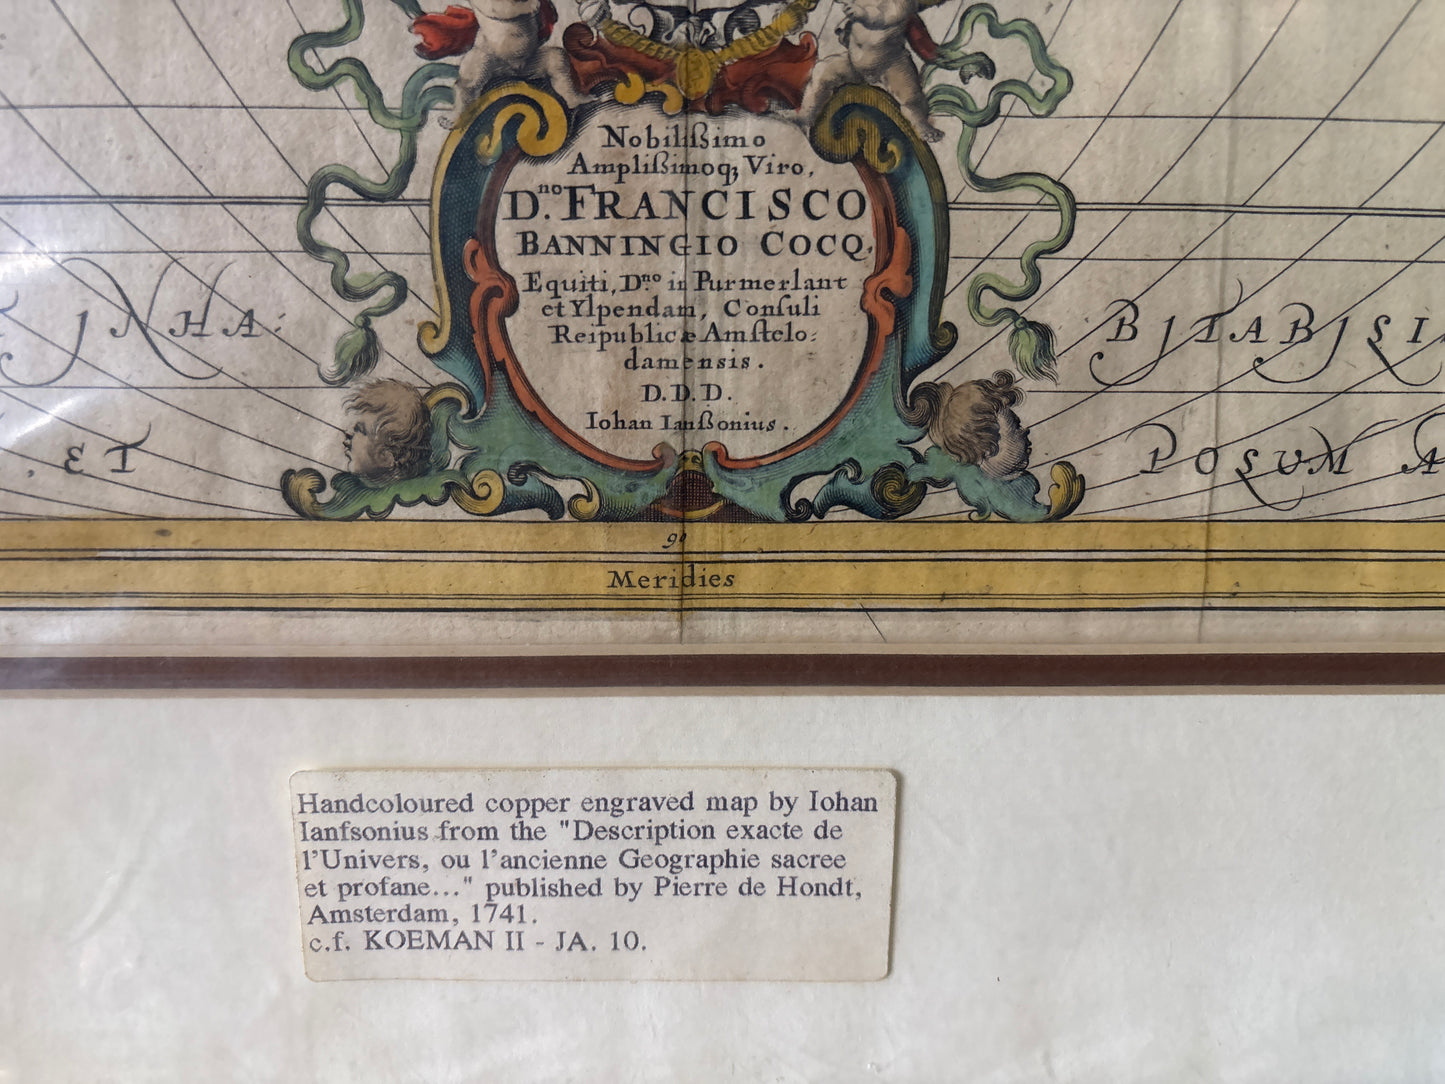 Nobilißimo
Amplißimoqꝫ Viro,
Dno. FRANCISCO
BANNINGIO COCQ,
Equiti, Dno. in Purmerlant
et Ylpendam, Conſuli
Reipublicæ Amſtelo:
damensis.
D.D.D.
Iohan Ianßonius.
INHA:
BITABISI
, ET
POSUM A
90
Meridies
Handcoloured copper engraved map by Iohan
Ianfsonius from the "Description exacte de
l'Univers, ou l'ancienne Geographie sacree
et profane..." published by Pierre de Hondt,
Amsterdam, 1741.
c.f. KOEMAN II - JA. 10.